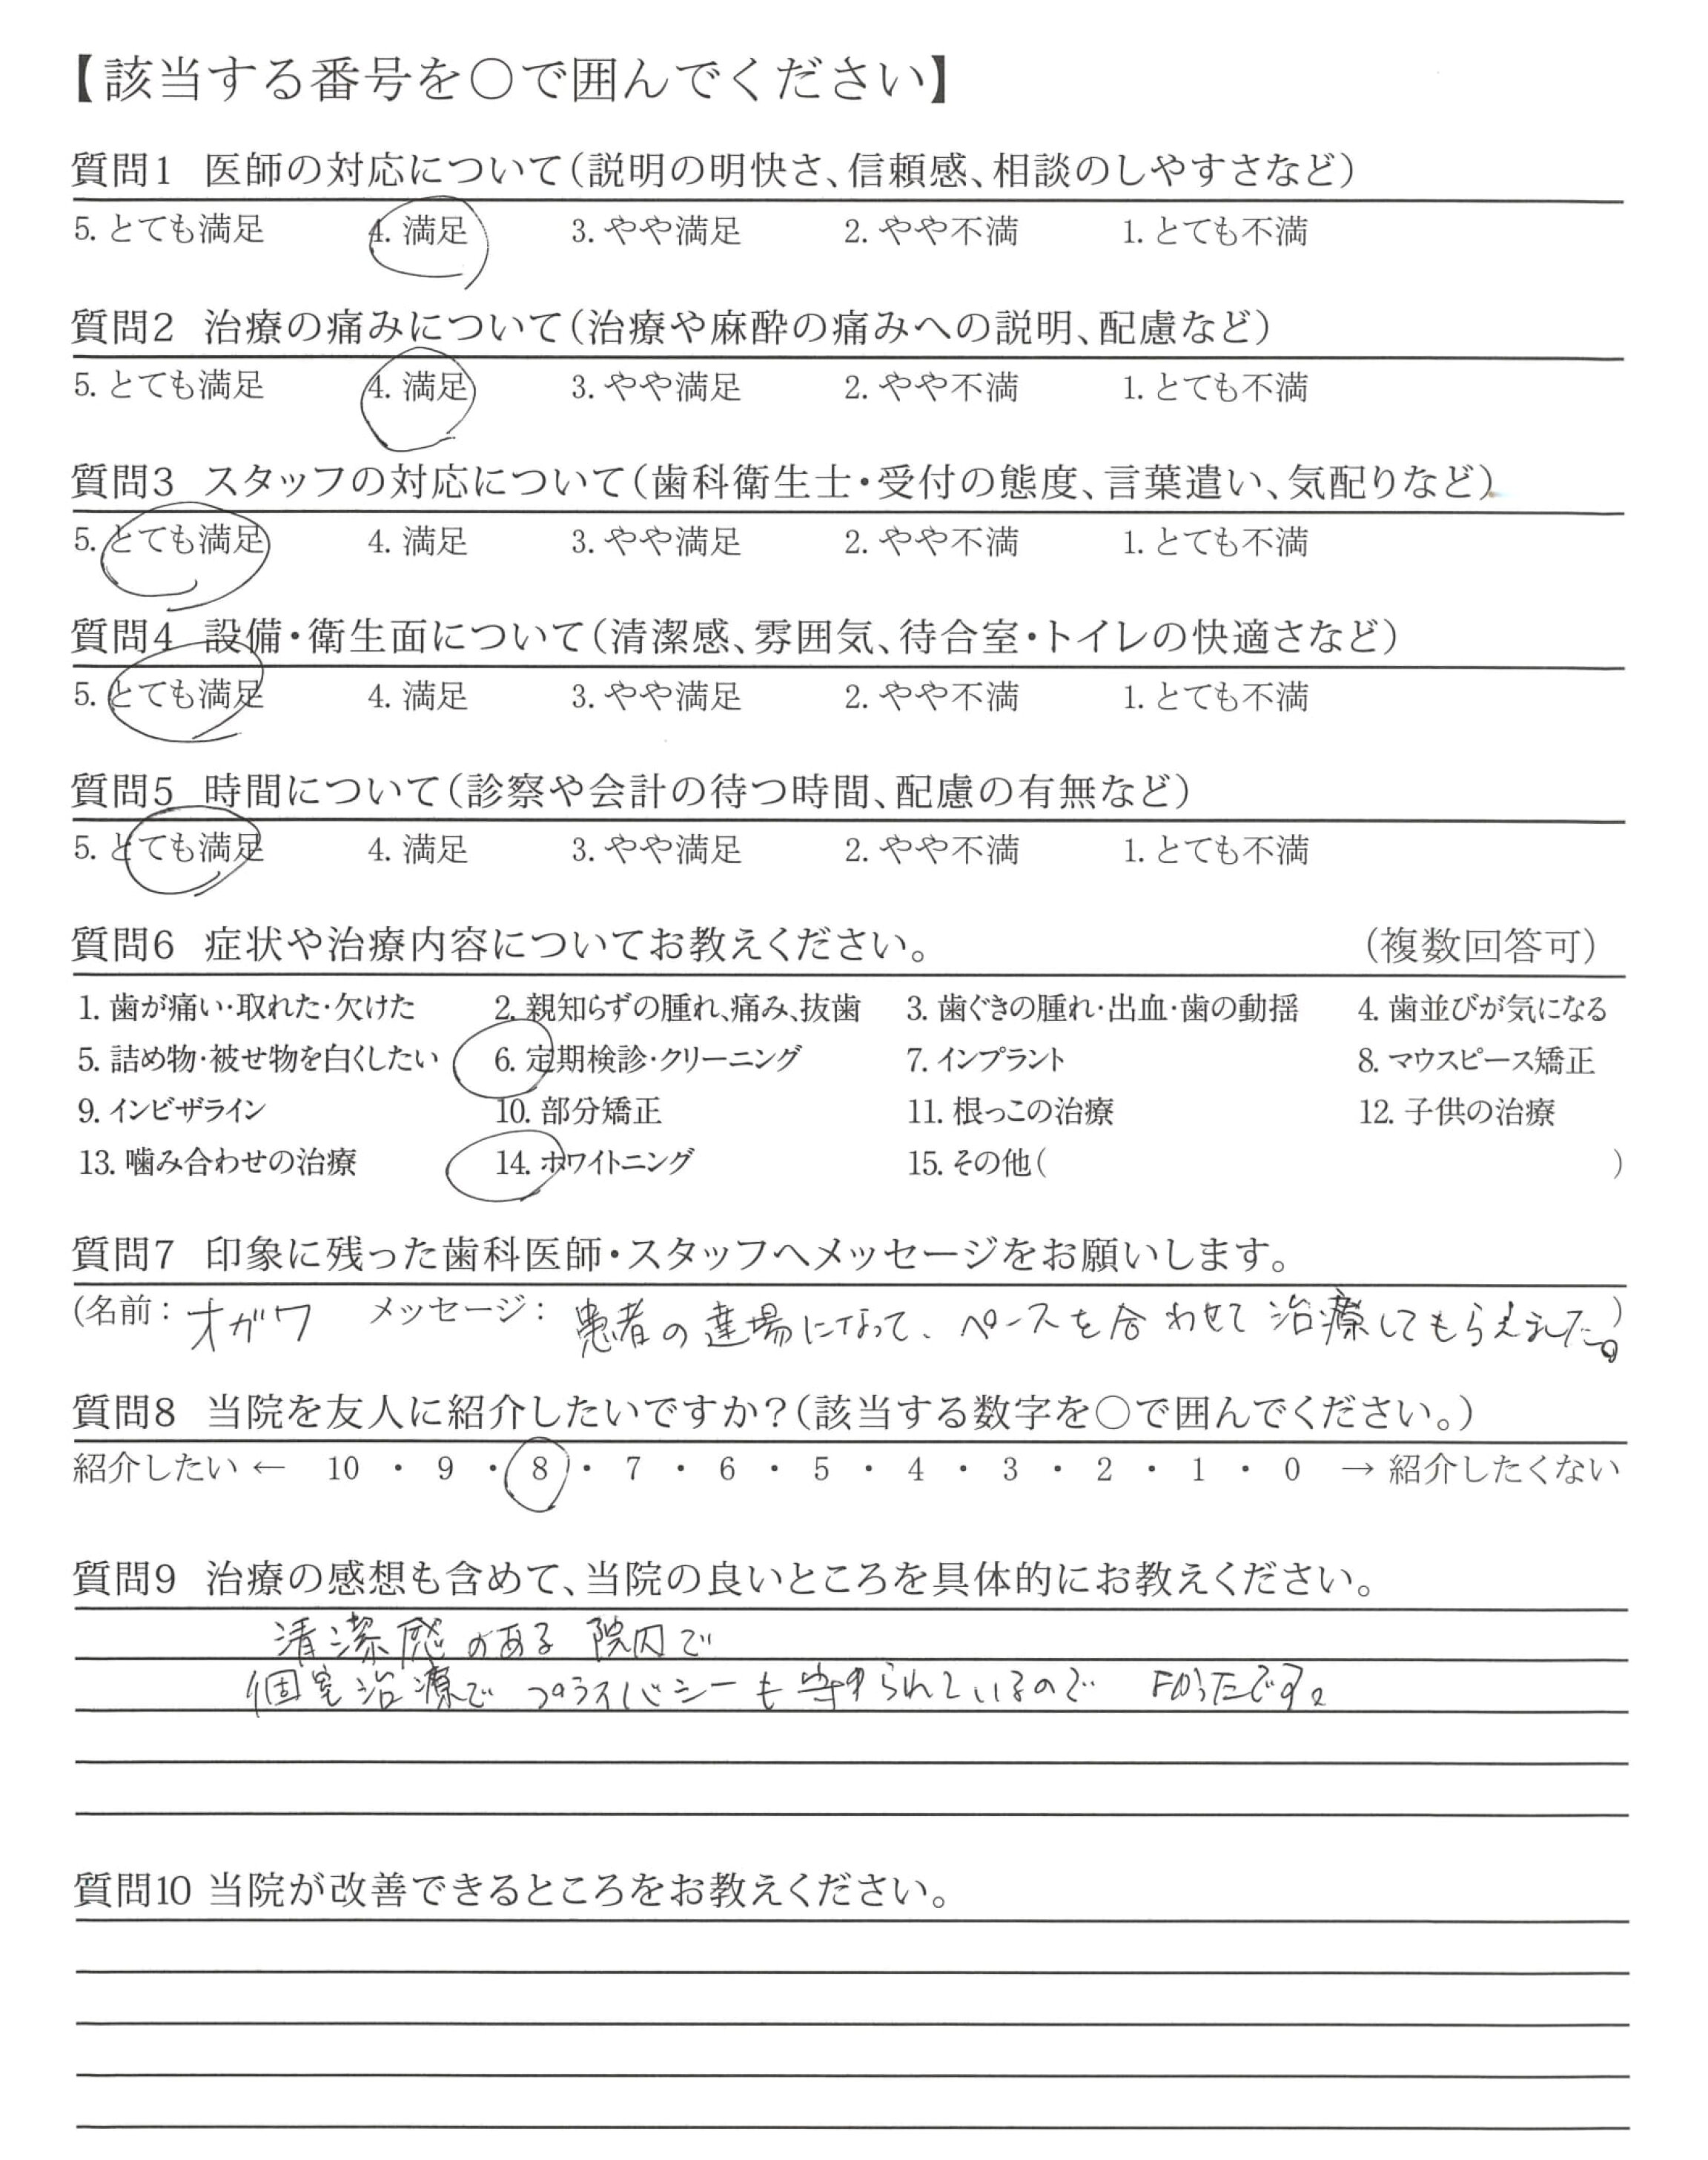 【該当する番号を○で囲んでください】
質問1 医師の対応について（説明の明快さ、信頼感、相談のしやすさなど）
5. とても満足 4. 満足 3. やや満足 2. やや不満 1. とても不満
質問2 治療の痛みについて（治療や麻酔の痛みへの説明、配慮など）
5. とても満足 4. 満足 3. やや満足 2. やや不満 1. とても不満
質問3 スタッフの対応について（歯科衛生士・受付の態度、言葉遣い、気配りなど）
5. とても満足 4. 満足 3. やや満足 2. やや不満 1. とても不満
質問4 設備・衛生面について（清潔感、雰囲気、待合室・トイレの快適さなど）
5. とても満足 4. 満足 3. やや満足 2. やや不満 1. とても不満
質問5 時間について（診察や会計の待つ時間、配慮の有無など）
5. とても満足 4. 満足 3. やや満足 2. やや不満 1. とても不満
質問6 症状や治療内容についてお教えください。 （複数回答可）
1. 歯が痛い・取れた・欠けた 2. 親知らずの腫れ、痛み、抜歯 3. 歯ぐきの腫れ・出血・歯の動揺 4. 歯並びが気になる
5. 詰め物・被せ物を白くしたい 6. 定期検診・クリーニング 7. インプラント 8. マウスピース矯正
9. インビザライン 10. 部分矯正 11. 根っこの治療 12. 子供の治療
13. 噛み合わせの治療 14. ホワイトニング 15. その他（ ）
質問7 印象に残った歯科医師・スタッフへメッセージをお願いします。
（名前：オガワ メッセージ：患者の立場になって、ペースを合わせて治療してもらえました。）
質問8 当院を友人に紹介したいですか？（該当する数字を○で囲んでください。）
紹介したい ← 10 ・ 9 ・ 8 ・ 7 ・ 6 ・ 5 ・ 4 ・ 3 ・ 2 ・ 1 ・ 0 → 紹介したくない
質問9 治療の感想も含めて、当院の良いところを具体的にお教えください。
清潔感のある 院内で
個室治療で プライバシーも守られているので 良かったです。
質問10 当院が改善できるところをお教えください。